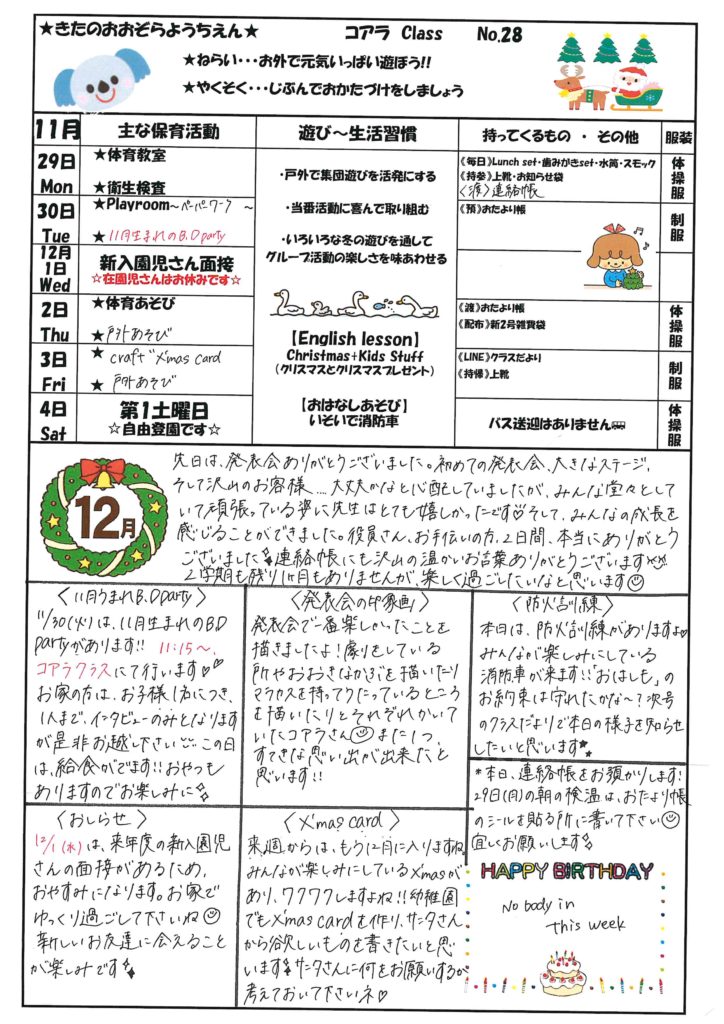 ★きたのおおぞらようちえん★
コアラ Class No.28
★ねらい・・・お外で元気いっぱい遊ぼう!!
★やくそく・・・じぶんでおかたづけをしましょう
11月 主な保育活動 遊び～生活習慣 持ってくるもの ・ その他 服装
29日 Mon
★体育教室
★衛生検査
30日 Tue
★Playroom～ペーパーワーク～
★11月生まれのB.D party
12月1日 Wed
新入園児さん面接
☆在園児さんはお休みです☆
2日 Thu
★体育あそび
★戸外あそび
3日 Fri
★craft "X'mas card
★戸外あそび
4日 Sat
第1土曜日
☆自由登園です☆
・戸外で集団遊びを活発にする
・当番活動に喜んで取り組む
・いろいろな冬の遊びを通して
グループ活動の楽しさを味あわせる
【English lesson】
Christmas+Kids Stuff
(クリスマスとクリスマスプレゼント)
【おはなしあそび】
いそいで消防車
《毎日》Lunch set・歯みがきset・水筒・スモック
《持参》上靴・お知らせ袋
《渡》連絡帳
体操服
《預》おたより帳
制服
《渡》おたより帳
《配布》新2号雑貨袋
体操服
《LINE》クラスだより
《持帰》上靴
制服
バス送迎はありません
体操服
12月
先日は、発表会ありがとうございました。初めての発表会、大きなステージ、
そして沢山のお客様…。大丈夫かなと心配していましたが、みんな堂々として
いて頑張っている姿に先生はとても嬉しかったです♡そして、みんなの成長を
感じることができました。役員さん、お手伝いの方、2日間、本当にありがとう
ございました 連絡帳にも沢山の温かいお言葉ありがとうございます
2学期も残り1ヶ月もありませんが、楽しく過ごしたいなと思います
〈11月うまれB.D party〉
11/30(火)は、11月生まれのB.D
partyがあります!! 11:15～、
コアラクラスにて行います♡♡
お家の方は、お子様1名につき、
1人まで、インタビューのみとなります
が是非お越し下さい この日
は、給食がでます!!おやつも
ありますのでお楽しみに
〈発表会の印象画〉
発表会で一番楽しかったことを
描きましたよ!劇りをしている
所やおおきなかぶを描いたり
マラカスを持ってうたっているところ
を描いたりとそれぞれかいて
いたコアラさん また1つ、
すてきな思い出が出来たと
思います!!
〈防火訓練〉
本日は、防火訓練がありますよ♡
みんなが楽しみにしている
消防車が来ます!!「おはしも」の
お約束は守れたかな～?次号
のクラスだよりで本日の様子を知らせ
したいと思います
*本日、連絡帳をお預かりします!
29日(月)の朝の検温は、おたより帳
のシールを貼る所に書いて下さい
宜しくお願いします
〈おしらせ〉
12/1(水)は、来年度の新入園児
さんの面接があるため、
おやすみになります。お家で
ゆっくり過ごして下さいね
新しいお友達に会えること
が楽しみです
〈X'mas card〉
来週からは、もう12月に入りますね。
みんなが楽しみにしているX'masが
あり、ワクワクしますよね!!幼稚園
でもX'mas cardを作り、サンタさん
から欲しいものを書きたいと思
います サンタさんに何をお願いするか
考えておいて下さいネ♡
HAPPY BIRTHDAY
No body in
this week